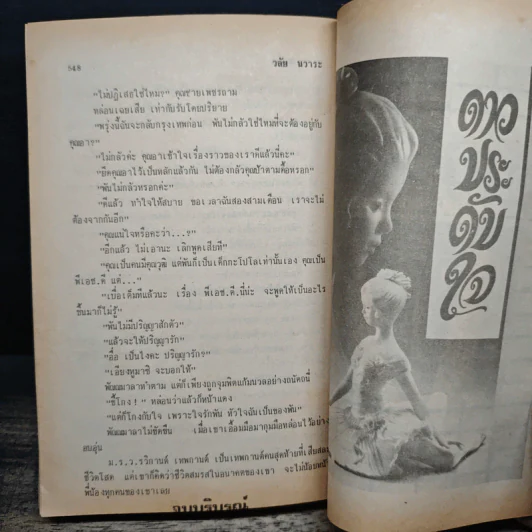 ๖๔๘
วลัย นวาระ
"ไม่ปฏิเสธใช่ไหม?" คุณชายเพชรถาม
หล่อนเฉยเสีย เท่ากับรับโดยปริยาย
"พรุ่งนี้ฉันจะกลับกรุงเทพก่อน พันไม่กลัวใช่ไหมที่จะต้องอยู่กับ
คุณอา?"
"ไม่กลัวค่ะ คุณอาเข้าใจเรื่องราวของเราดีแล้วนี่คะ"
"ยึดคุณอาไว้เป็นหลักแล้วกัน ไม่ต้องกลัวคุณป้าตามตื๊อหรอก"
"พันไม่กลัวหรอกค่ะ"
"ดีแล้ว ทำใจให้สบาย ขอเวลาฉันสองสามเดือน เราจะไม่
ต้องจากกันอีก"
"คุณแน่ใจหรือคะว่า...?"
"อีกแล้ว ไม่เอานะ เลิกพูดเสียที"
"คุณเป็นคนมีคุณวุฒิ แต่พันก็เป็นเด็กกะโปโลเท่านั้นเอง คุณเป็น
พีเอช.ดี แต่..."
"เบื่อเต็มทีแล้วนะ เรื่อง พีเอช.ดี.นี่น่ะ จะพูดให้เป็นอะไร
ขึ้นมาก็ไม่รู้"
"พันไม่มีปริญญาสักตัว"
"แล้วจะให้ปริญญารัก"
"อื้อ เป็นไงคะ ปริญญารัก?"
"เอียงหูมาซิ จะบอกให้"
พันณมาลาทำตาม แต่ก็เพียงถูกจุมพิตแก้มนวลอย่างถนัดถนี่
"ขี้โกง!" หล่อนว่าแล้วก็หน้าแดง
"แต่ก็โกงกับใจ เพราะใจรักพัน หัวใจฉันเป็นของพัน"
พันณมาลาไม่ขัดขืน เมื่อเขาเอื้อมมือมากุมมือหล่อนไว้อย่าง
อบอุ่น
ม.ร.ว.รวิกานต์ เทพกานต์ เป็นเทพกานต์คนสุดท้ายที่เสียสละ
ชีวิตโสด แต่เขาก็คิดว่าชีวิตสมรสในอนาคตของเขา จะไม่น้อยหน้า
พี่น้องทุกคนของเขาเลย
จบบริบูรณ์
ดาว
ประ
ดับ
ใจ